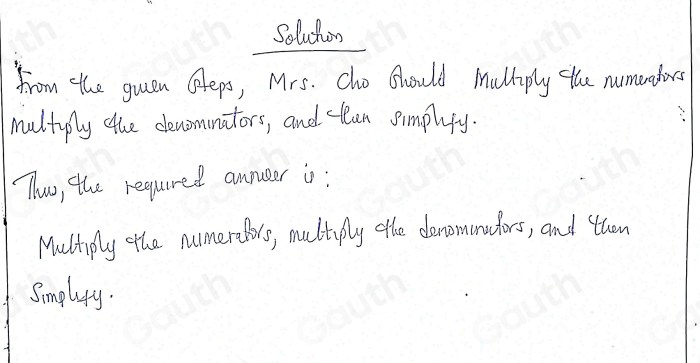 Solution
From the given steps, Mrs. Cho should Multiply the numerators
multiply the denominators, and then simplify.
Thus, the required answer is:
Multiply the numerators, multiply the denominators, and then
Simplify.